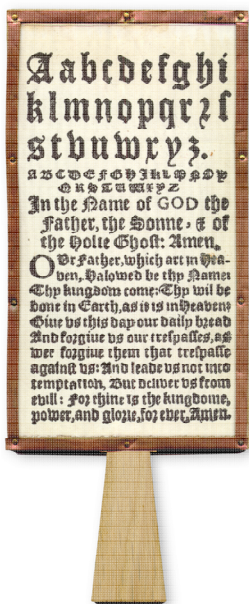 Aabcdefghi
klmnopqrꝛſ
stvuwxyz.
ABCDEFGHIKLMNOP
QRSTUWXYZ
In the Name of GOD the
Father, the Sonne, ⁊ of
the Holie Ghoſt: Amen.
OUr Father, which art in Hea-
ven, Halowed be thy Name:
Thy kingdom come: Thy wil be
done in Earth, as it is in Heaven:
Giue vs this day our daily bread
And forgiue vs our treſpaſſes, as
wee forgiue them that treſpaſſe
againſt vs: And leade vs not into
temptation, But deliver vs from
evill: For thine is the kingdome,
power, and glorie, for ever, Amen.